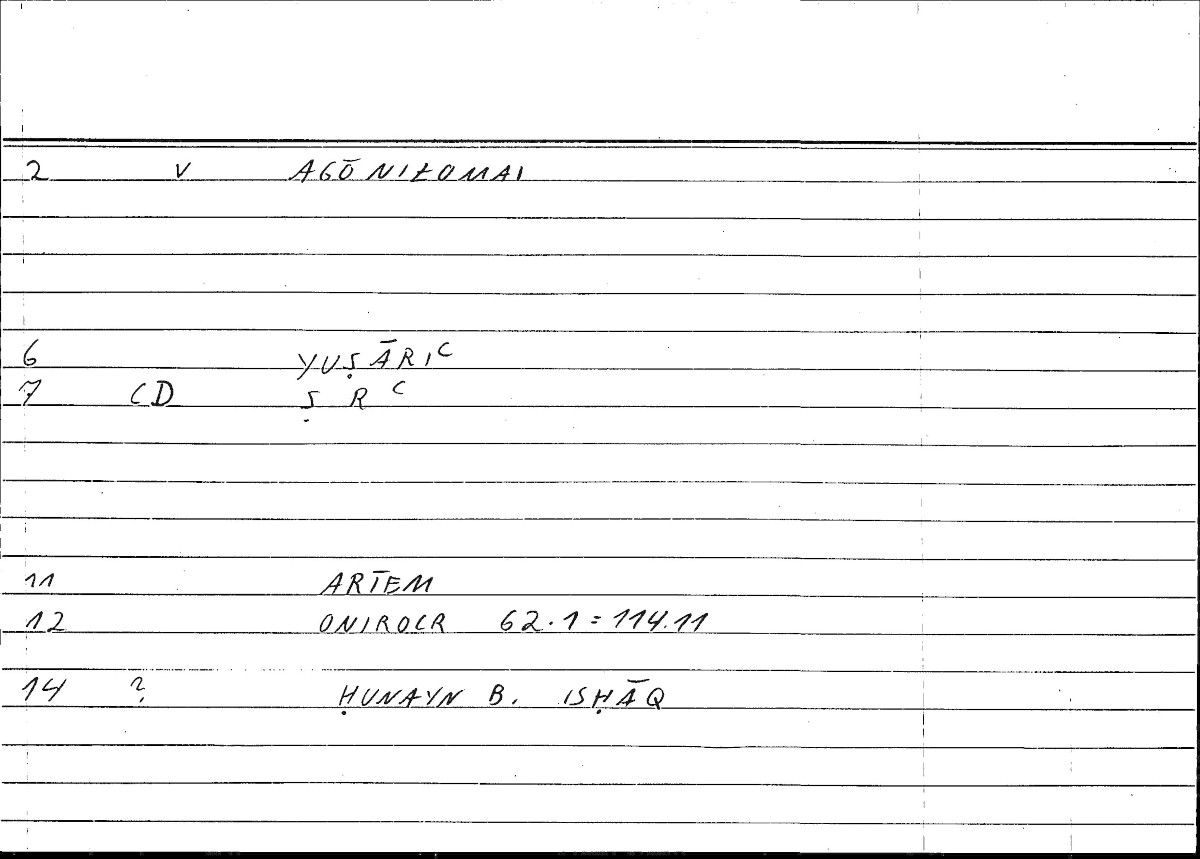 2 V AGŌNIZOMAI
6 YUṢĀRIʿ
7 CD Ṣ R ʿ
11 ARTEM
12 ONIROCR 62.1=114.11
14 ? ḤUNAYN B. ISḤĀQ